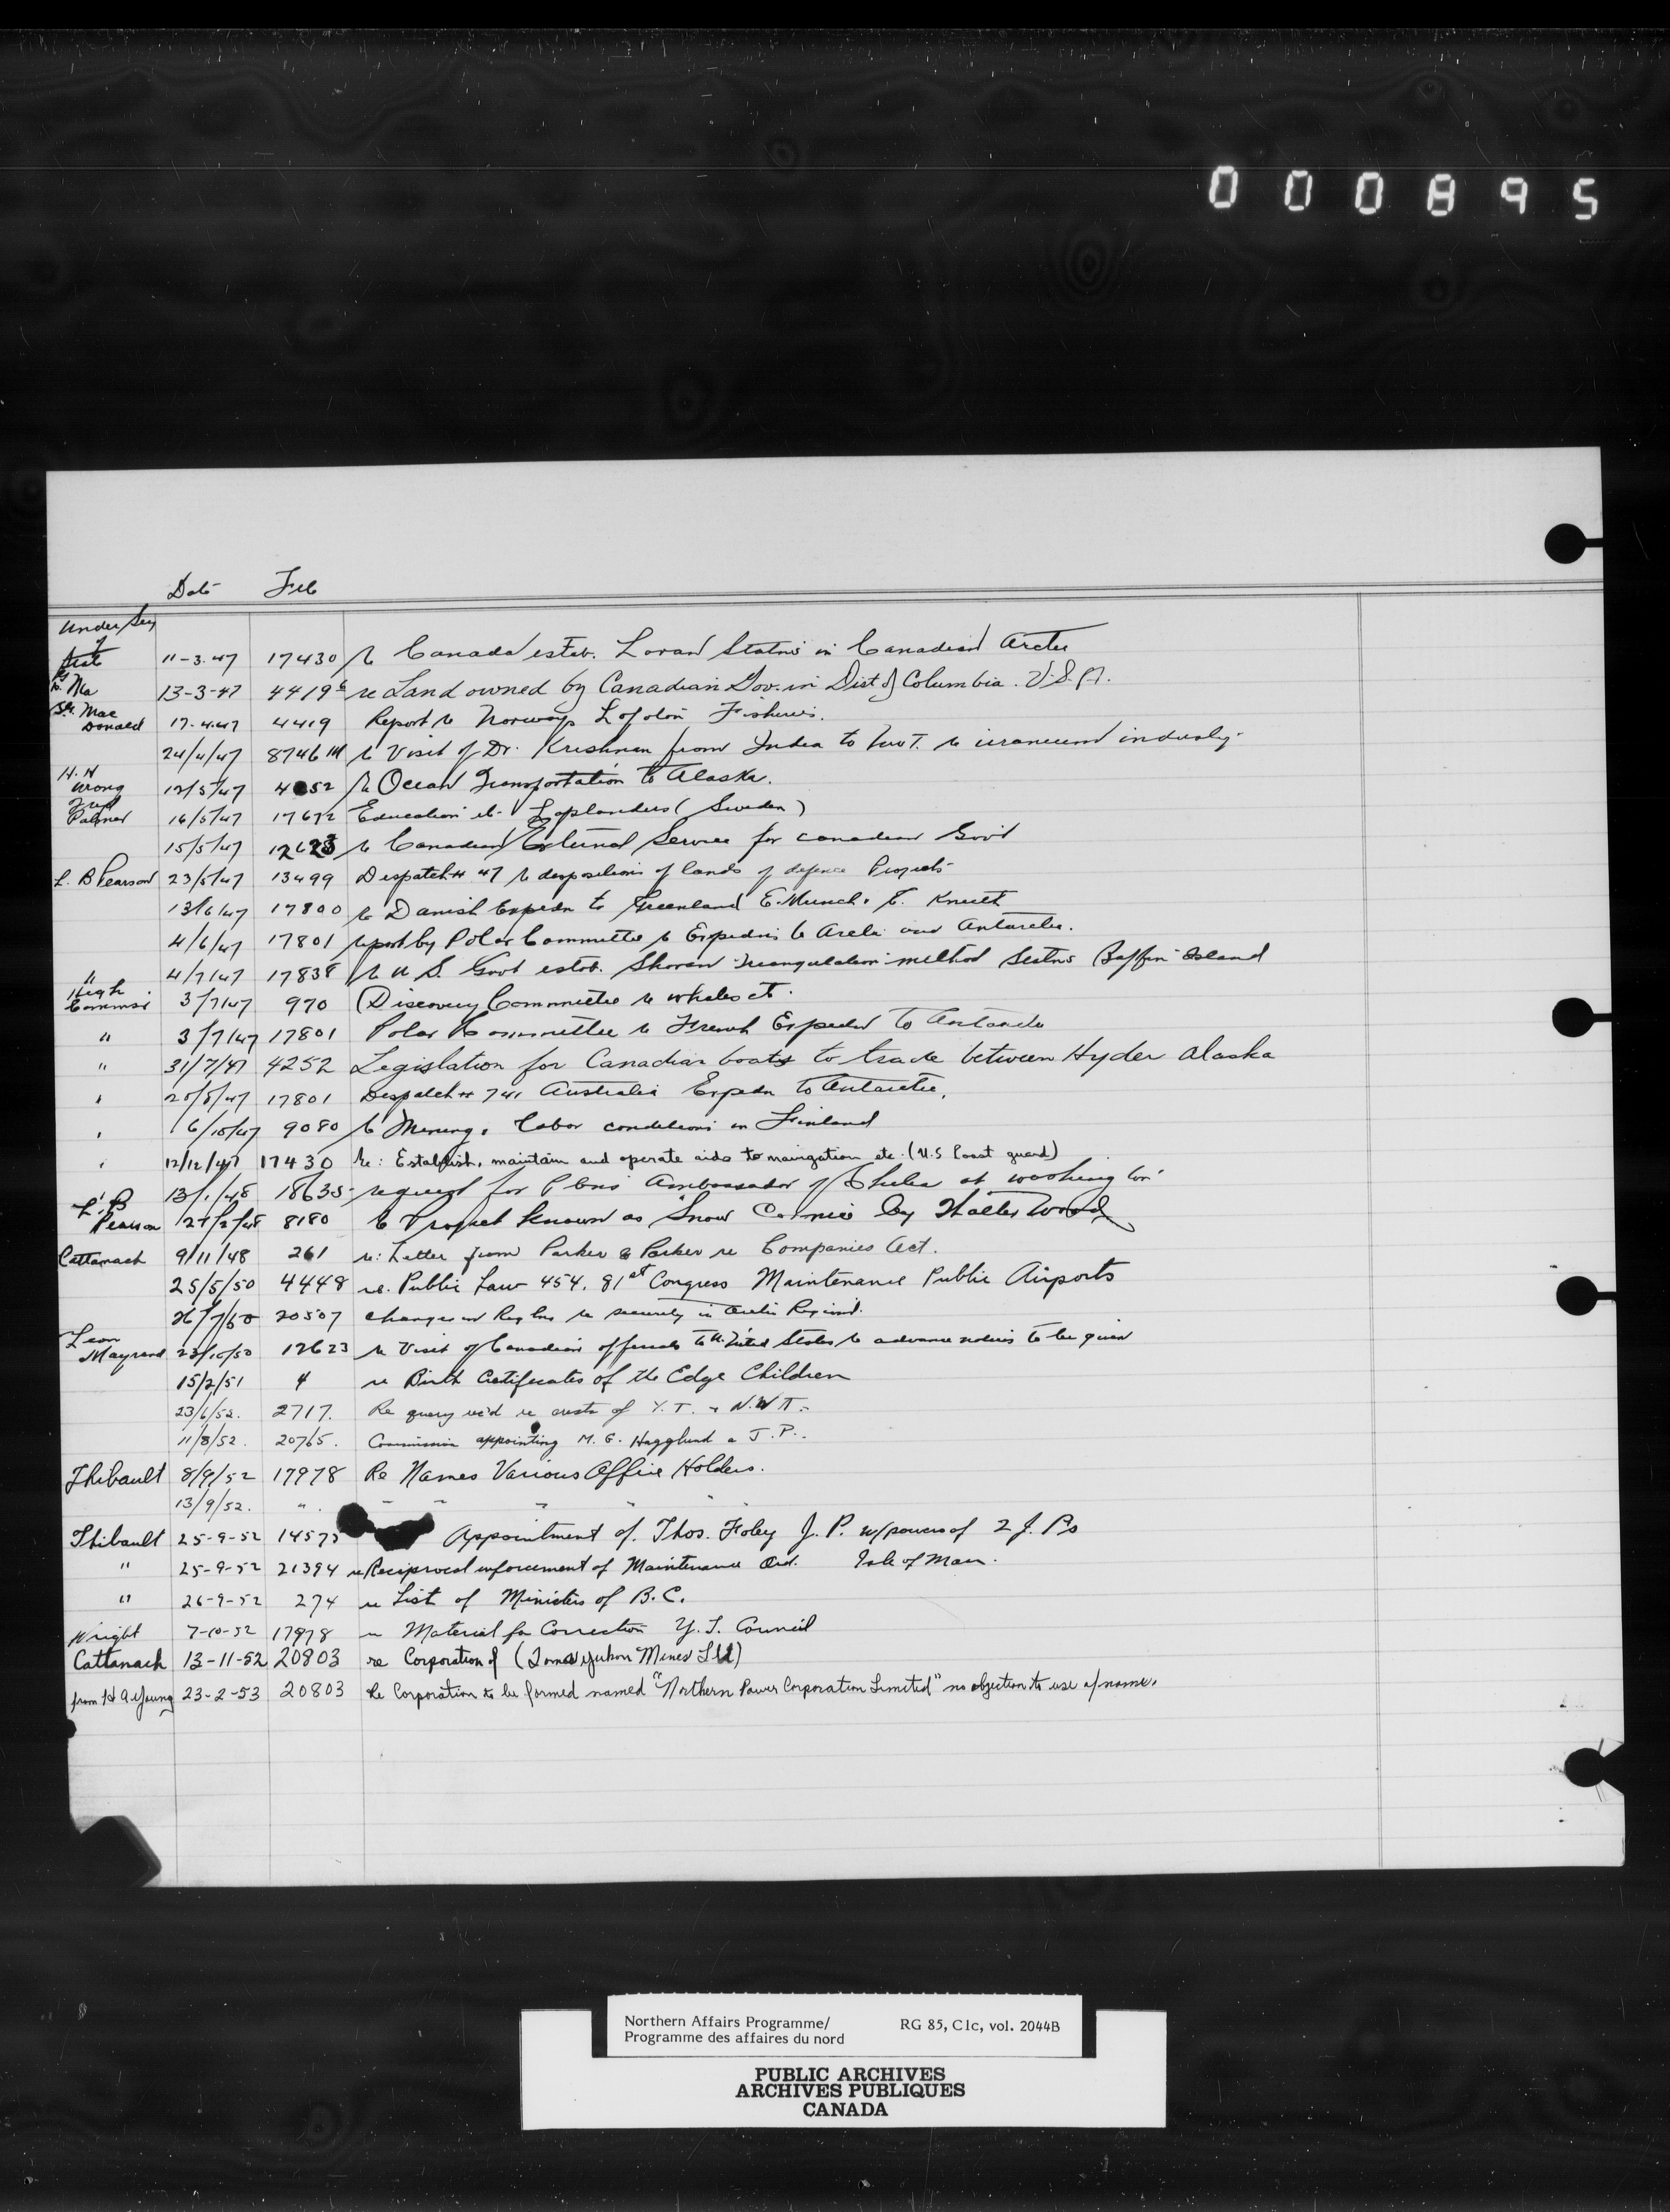 000895
Date File
Under Sec
of
State
11-3-47 17430 re Canada estab. Loran Statns in Canadian Arctic
13-3-47 4419 re Land owned by Canadian Gov. in Dist of Columbia. U.S.A.
Mac
Donald 17-4-47 4419 Report re Norways Lofoten Fisheries.
24/4/47 8746 re Visit of Dr. Krishnan from India to NWT. re uranium industry
H. H
Wrong 12/5/47 4052 re Ocean Transportation to Alaska.
Palmer 16/5/47 17672 Education etc Laplanders (Sweden)
15/5/47 12623 re Canadian External Service for Canadian Govt
L. B Pearson 23/5/47 13499 Despatch # 47 re dispositions of lands of defence Projects
13/6/47 17800 re Danish Expedn to Greenland E. Munch. E. Knuth
4/6/47 17801 report by Polar Committee re Expedns to Arctic and Antarctic.
" 4/7/47 17838 re U S. Govt estab. Shoran triangulation method Statns Baffin Island
High
Commsr 3/7/47 970 Discovery Committee re whales etc.
" 3/7/47 17801 Polar Committee re French Expedn to Antarctic
" 31/7/47 4252 Legislation for Canadian boats to trade between Hyder Alaska
" 25/8/47 17801 Despatch # 741 Australia Expedn to Antarctic.
" 6/10/47 9080 re Mining, labor conditions in Finland
" 12/12/47 17430 Re: Establish, maintain and operate aids to navigation etc. (U.S Coast guard)
" 13/1/48 18635 request for Ambassador of at Washington
L. B
Pearson 24/2/48 8180 re Project known as Snow Cornice by Walter Wood
Cattanach 9/11/48 261 re: Letter from Parker & Parker re Companies Act.
25/5/50 4448 re. Public Law 454. 81st Congress Maintenance Public Airports
26/7/50 20507 changes in Reg re security in Arctic Regions.
Leon
Mayrand 23/10/50 12623 re Visit of Canadian officials to United States re advance notices to be given
15/2/51 4 re Birth Certificates of the Edge Children
23/6/52. 2717. Re query rec'd re crests of Y.T. & N.W.T.
11/8/52. 20765. Commission appointing M. G. Hagglund a J. P..
Thibault 8/9/52 17978 Re Names Various Office Holders.
13/9/52. " " " " " "
Thibault 25-9-52 14575 Appointment of Thos. Foley J. P. w/powers of 2 J. Ps
" 25-9-52 21394 re Reciprocal enforcement of Maintenance Ord. Isle of Man.
" 26-9-52 274 re List of Ministers of B.C.
Wright 7-10-52 17978 re Material for Correction Y. T. Council
Cattanach 13-11-52 20803 re Corporation of (Yukon Mines Ltd)
from H A Young 23-2-53 20803 Re Corporation to be formed named "Northern Power Corporation Limited" no objection to use of name.
Northern Affairs Programme/ RG 85, C1c, vol. 2044B
Programme des affaires du nord
PUBLIC ARCHIVES
ARCHIVES PUBLIQUES
CANADA